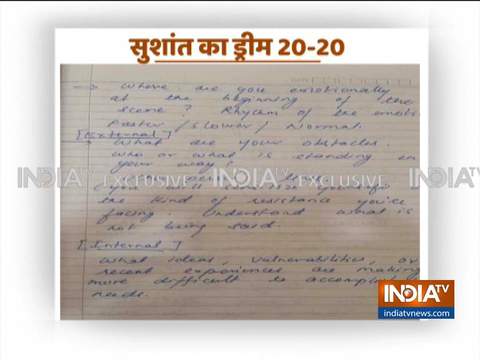 सुशांत का ड्रीम 20-20
→ Where are you emotionally
at the beginning of the
scene? Rhythm of the
Faster / Slower / Normal.
[External]
→ What are your obstacles.
who or what is standing in
your way?
INDIA TV EXCLUSIVE INDIA TV EXCLUSIVE INDIA TV
you will
the kind of resistance you're
facing. Understand what is
not being said.
[Internal]
What ideas, vulnerabilities, or
recent experiences are making
more difficult to accomplish
needs.
INDIA TV
indiatvnews.com